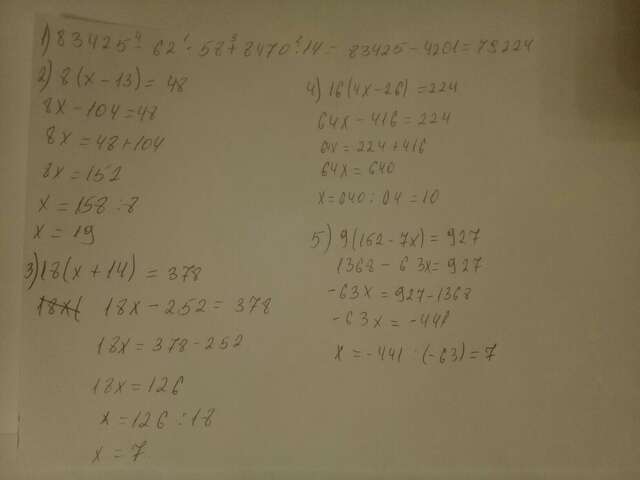 1) 83425 - 62 · 58 + 8470 : 14 = 83425 - 4201 = 79224
2) 8(x - 13) = 48
8x - 104 = 48
8x = 48 + 104
8x = 152
x = 158 : 8
x = 19
3) 18(x + 14) = 378
18x( 18x - 252 = 378
18x = 378 - 252
18x = 126
x = 126 : 18
x = 7
4) 16(4x - 26) = 224
64x - 416 = 224
64x = 224 + 416
64x = 640
x = 640 : 64 = 10
5) 9(152 - 7x) = 927
1368 - 63x = 927
-63x = 927 - 1368
-63x = -441
x = -441 : (-63) = 7